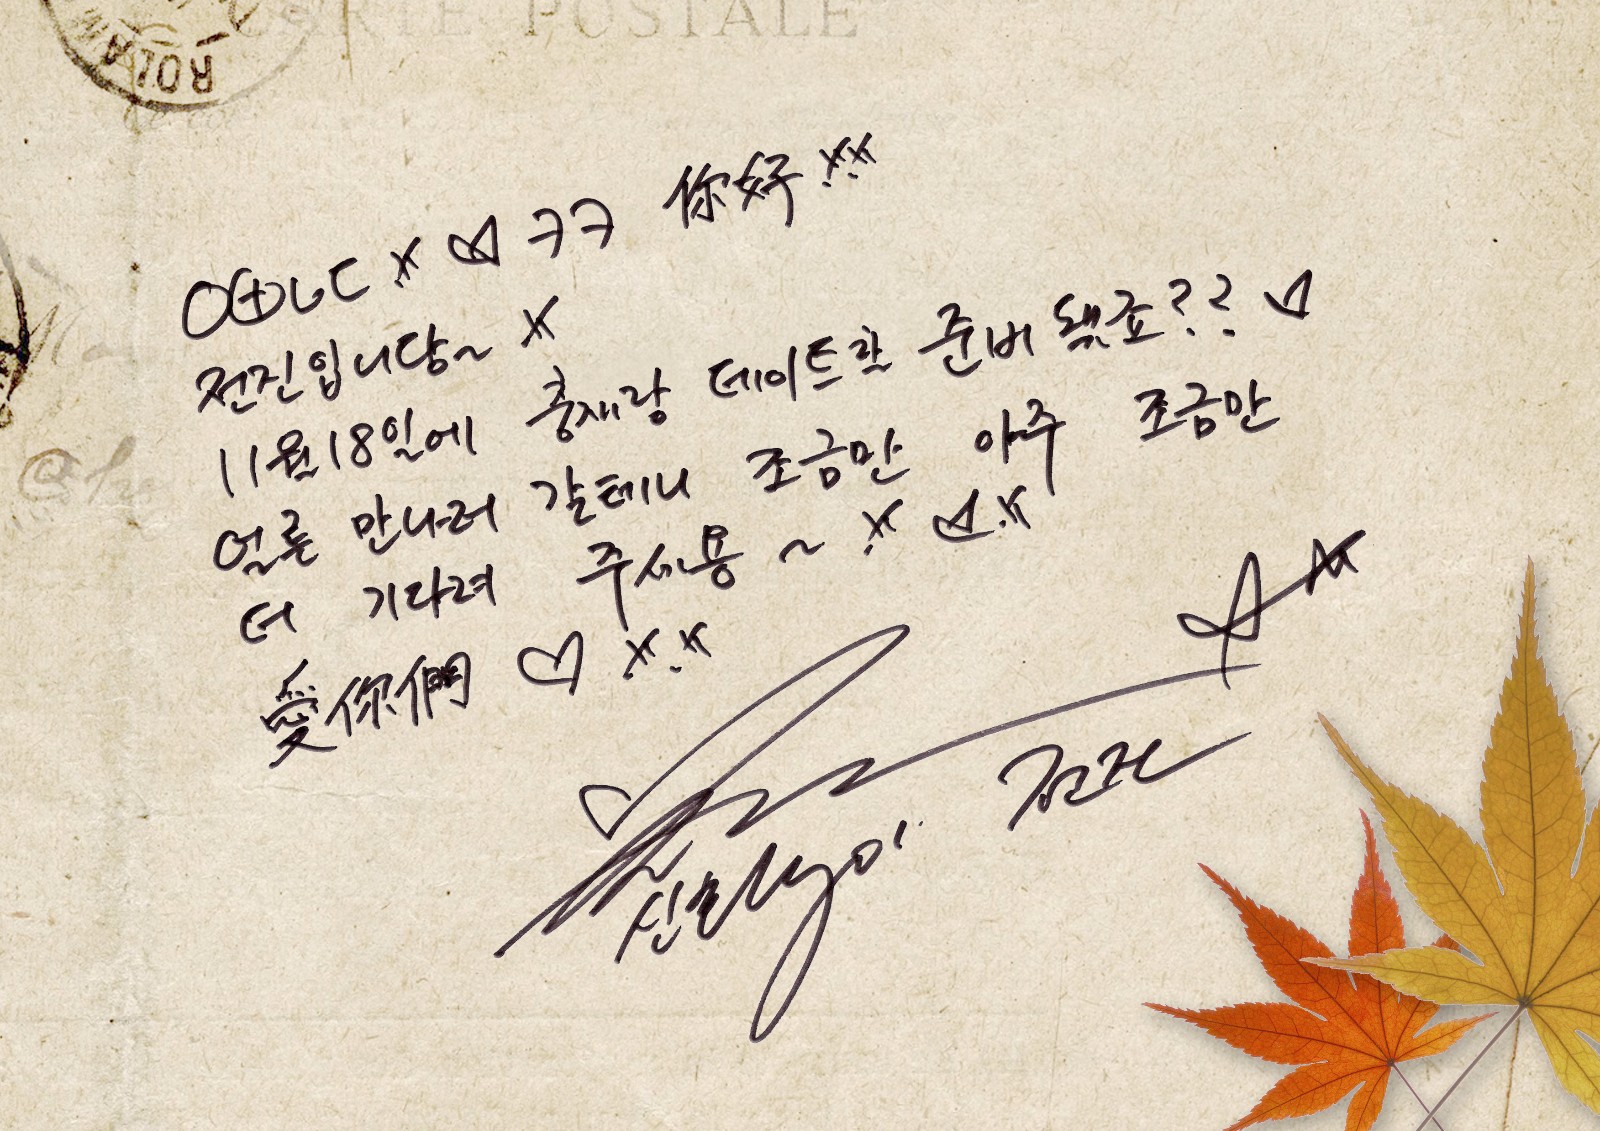 CARTE POSTALE
ROLA
ㅋㅋ 你好!!
전진입니당~!
11월18일에 충재랑 데이트할 준비 됐죠?? ♡
얼른 만나러 갈테니 조금만 아주 조금만
더 기다려 주세용~! ♡!!
愛你們 ♡!!
전진